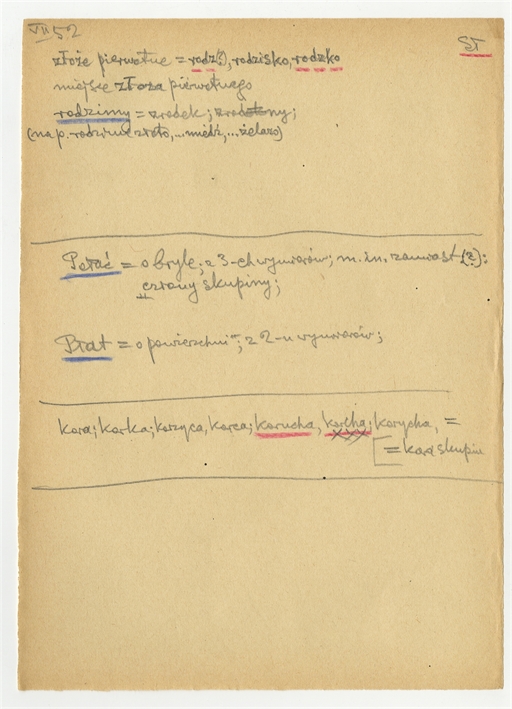 VII 52
ST
złoże pierwotne = rodz(?), rodzisko, rodzko
miejsce złoża pierwotnego
rodzimy = zrodek; zrodny;
(nap. rodzime złoto, ... miedź, ... żelazo)
Połać = o bryle; o 3-ch wymiarów; m. in. zamiast (?):
czrony skupiny;
Płat = o powierzchni; z 2-u wymiarów;
kora; korka; korzyca, korca; korucha, korcha; korycha, =
= kora skupin